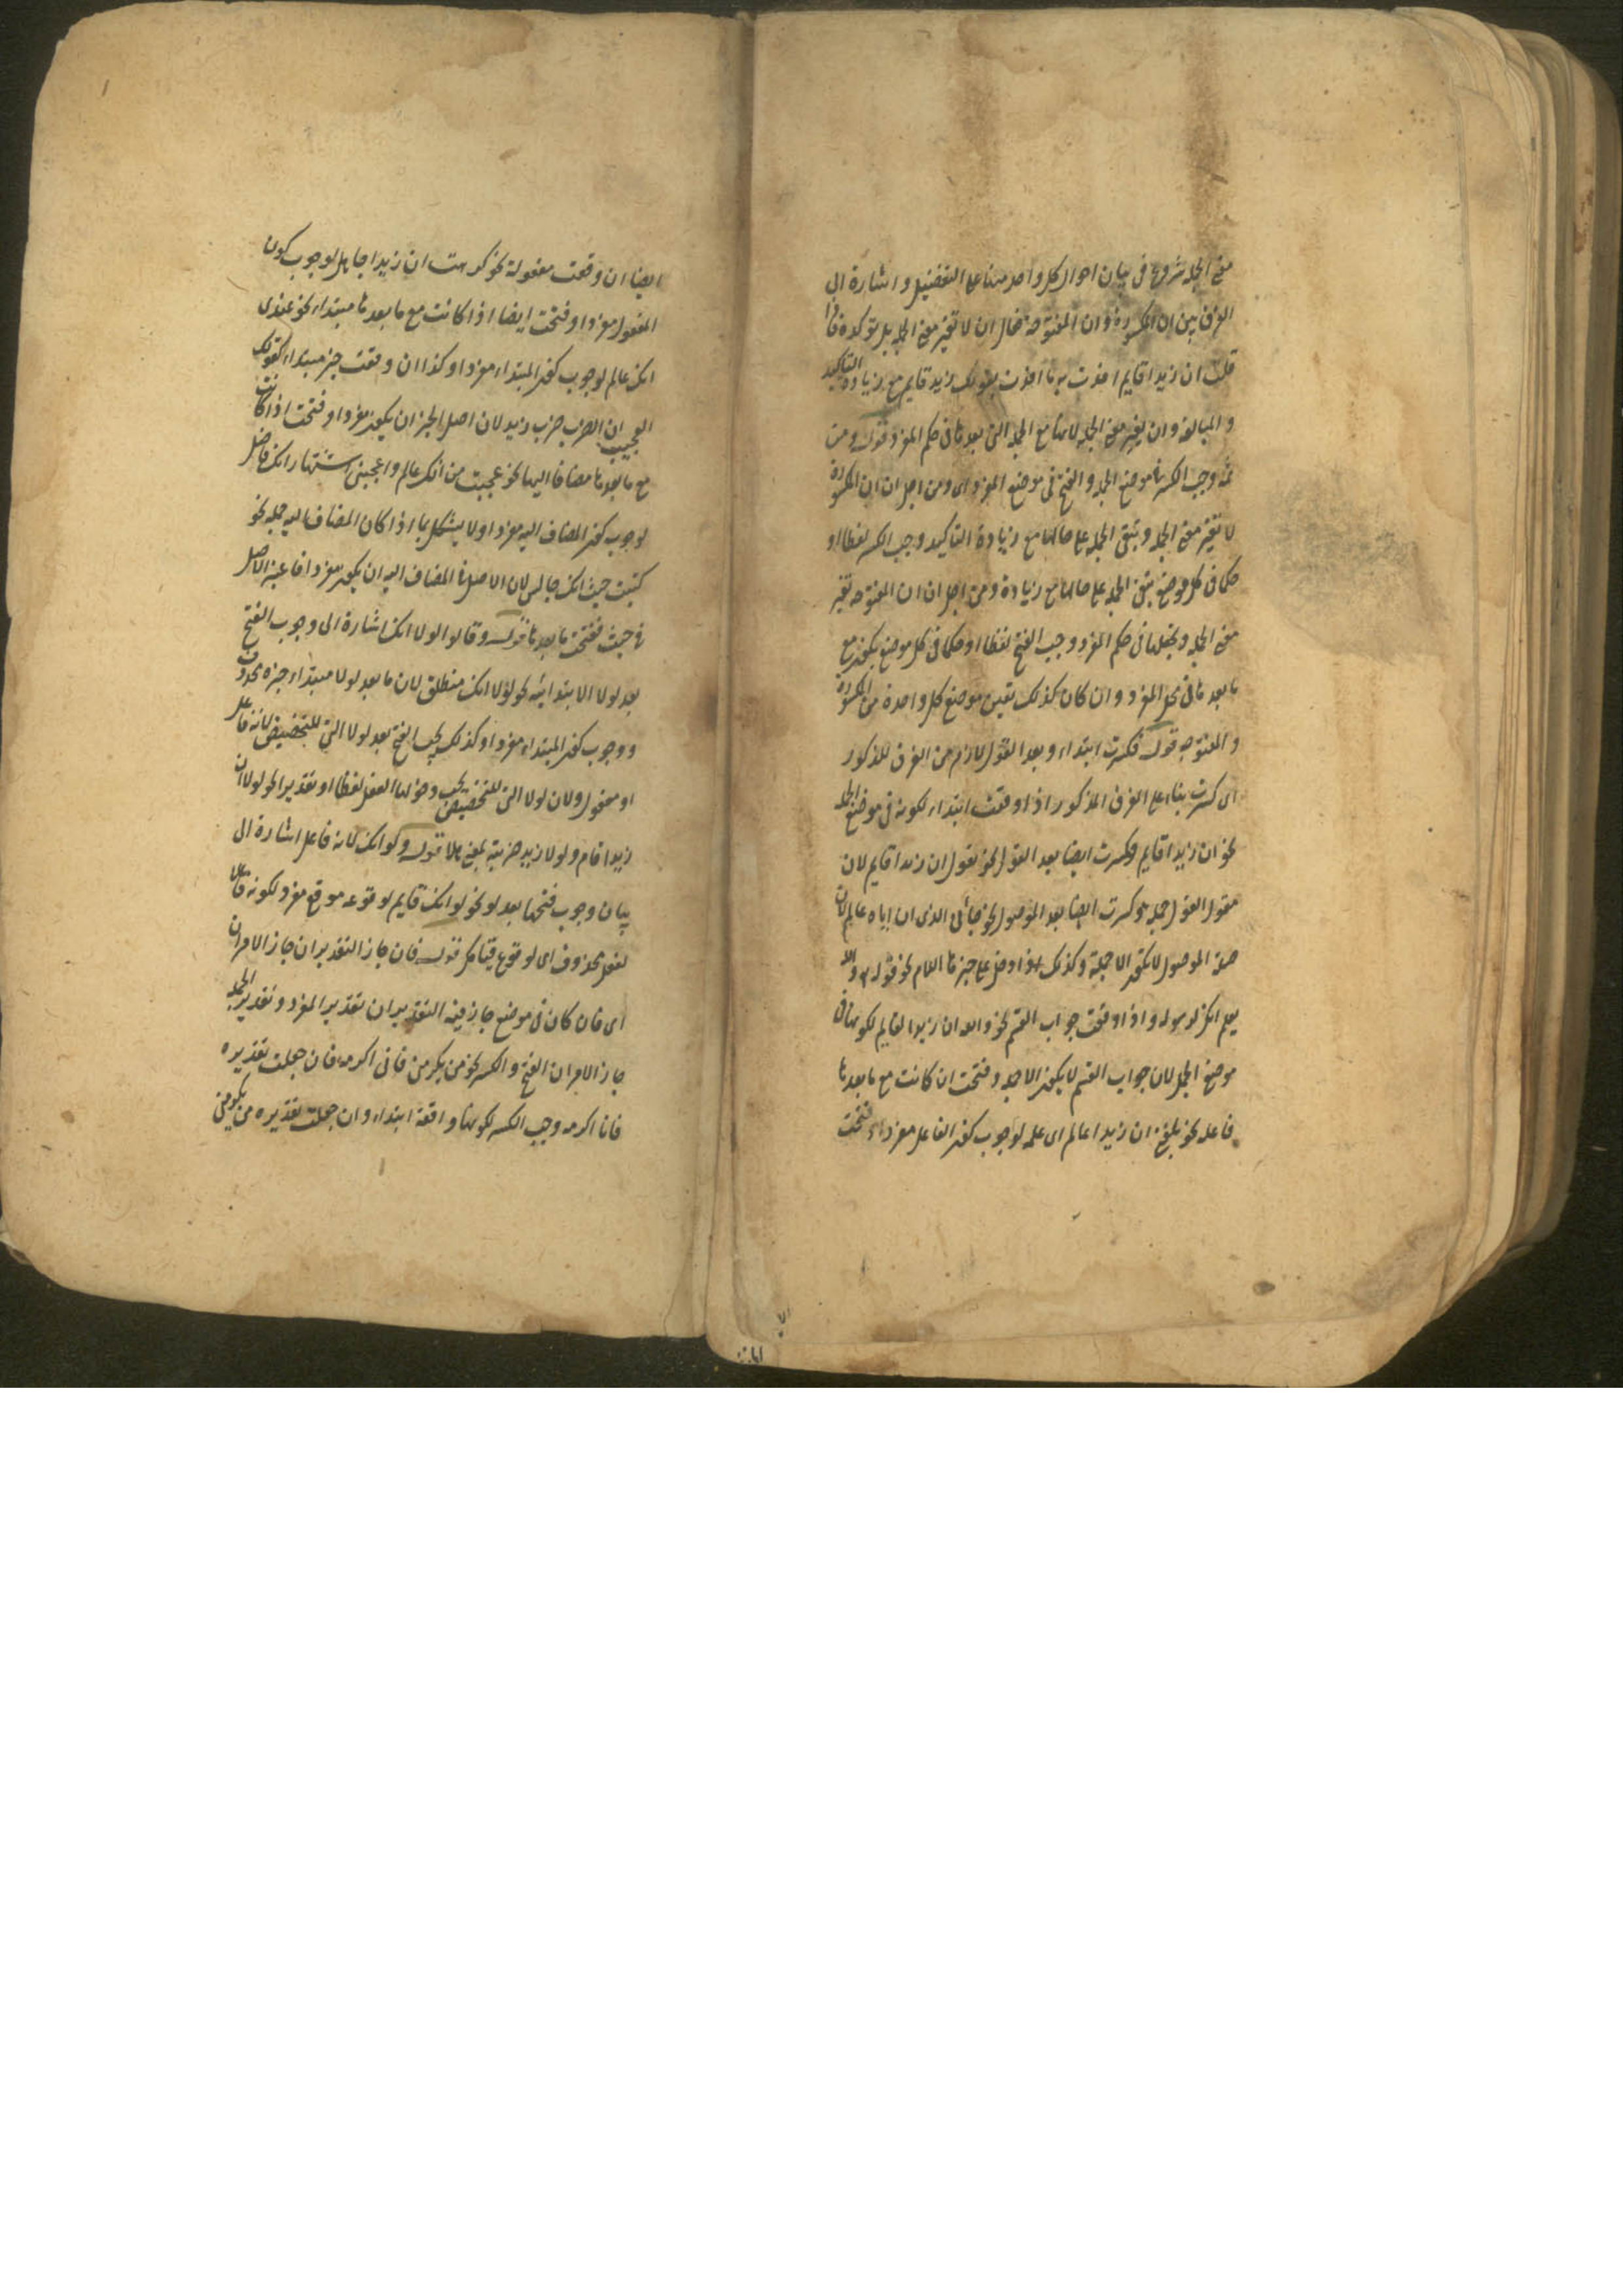 معنى الجملة شروع فى بيان احوال كل واحد منها على التفضيل واشارة الى
الفرق بين ان المكسورة وان المفتوحة فقال ان لا تغير معنى الجملة بل توكده فاذا
قلت ان زيدا قايم افدت به ما افدت بقولك زيد قايم مع زيادة التاكيد
والمبالغة وان يغير معنى الجملة لانها مع الجملة التى بعدها فى حكم المفرد قوله ومن
ثمه وجب الكسر فى موضع الجملة والفتح فى موضع المفرد اى ومن اجل ان ان المكسورة
لا تغير معنى الجملة وتبقى الجملة على حالها مع زيادة التاكيد وجب الكسر لفظا او
حكما فى كل موضع يبقى الجملة على حالها مع زيادة ومن اجل ان ان المفتوحه تغير
معنى الجملة ويجعلها فى حكم المفرد وجب الفتح لفظا او حكما فى كل موضع يكون مع
ما بعدها فى محل المفرد وان كان كذلك تعين موضع كل واحدة من المكسورة
والمفتوحه قوله فكسرت ابتداء وبعد القول لازم من الفرق المذكور
اى كسرت بناء على الفرق المذكور اذا وقعت ابتداء لكونه فى موضع الجملة
نحو ان زيدا قايم وكسرت ايضا بعد القول نحو يقول ان زيدا قايم لان
مقول القول جملة وكسرت ايضا بعد الموصول نحو جائى الذى ان اباه عالم لان
صلة الموصول لا يكون الا جملة وكذلك اذا دخل على خبرها اللام نحو قوله والله
يعلم انك لرسوله واذا وقعت جواب القسم نحو والله ان زيدا لقايم لكونها فى
موضع الجمل لان جواب القسم لا يكون الا جملة وفتحت ان كانت مع ما بعدها
فاعله نحو بلغنى ان زيدا عالم اى علمه لوجوب كون الفاعل مفردا وفتحت
ايضا ان وقعت مفعولة نحو كرهت ان زيدا جاهل لوجوب كون
المفعول مفردا وفتحت ايضا اذا كانت مع ما بعدها مبتداء نحو عندى
انك عالم لوجوب كون المبتداء مفردا وكذا ان وقعت خبر مبتداء كقولك
العجيب ان الضرب ضرب زيد لان اصل الخبر ان يكون مفردا وفتحت اذا كانت
مع ما بعدها مضافا اليها نحو عجبت من انك عالم واعجبنى اشتهار انك فاضل
لوجوب كون المضاف اليه مفردا ولا يشكل بما اذا كان المضاف اليه جملة نحو
كتبت حيث انك جالس لان الاصل فى المضاف اليه ان يكون مفردا
فى حيث ففتحت ما بعدها قوله وقالوا لولا انك اشارة الى وجوب الفتح
بعد لولا الابتدائية نحو لولا انك منطلق لان ما بعد لولا مبتداء خبره محذوف
ووجوب كون المبتداء مفردا وكذلك يجب الفتح بعد لولا التى للتحضيض لانه فاعل
او مفعول ولان لولا التى للتحضيض يجب دخولها الفعل لفظا او تقديرا نحو لولا ان
زيدا قام ولولا زيد ضربته بمعنى هلا قوله ولو انك لانه فاعل اشارة الى
بيان وجوب فتحها بعد لو نحو لو انك قايم لوقوعه موقع مفرد لكونه فاعلا
لفعل محذوف اى لو وقع قيامك قوله فان جاز التقديران جاز الامران
اى فان كان فى موضع جاز فيه التقديران تقدير المفرد وتقدير الجملة
جاز الامران الفتح والكسر نحو من يكرمنى فانى اكرمه فان جعلت تقديره
فانا اكرمه وجب الكسر لكونها واقعة ابتداء وان جعلت تقديره من يكرمنى